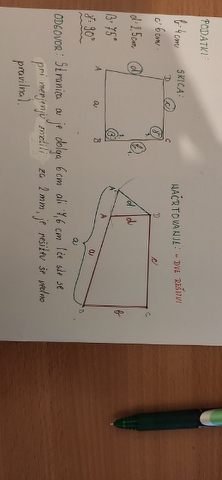 PODATKI:
b = 4cm
c = 6cm
d = 2,5cm
β = 75°
γ = 90°
SKICA:
D
c
C
d
γ
A
a
B
β
b
NAČRTOVANJE: - DVE REŠITVI
D
c
C
d
d
A'
A
b
a
a
B
ODGOVOR: Stranica a je dolga 6cm ali 4,6 cm (če ste se
pri merjenju zmotili za 2mm, je rešitev še vedno
pravilna).